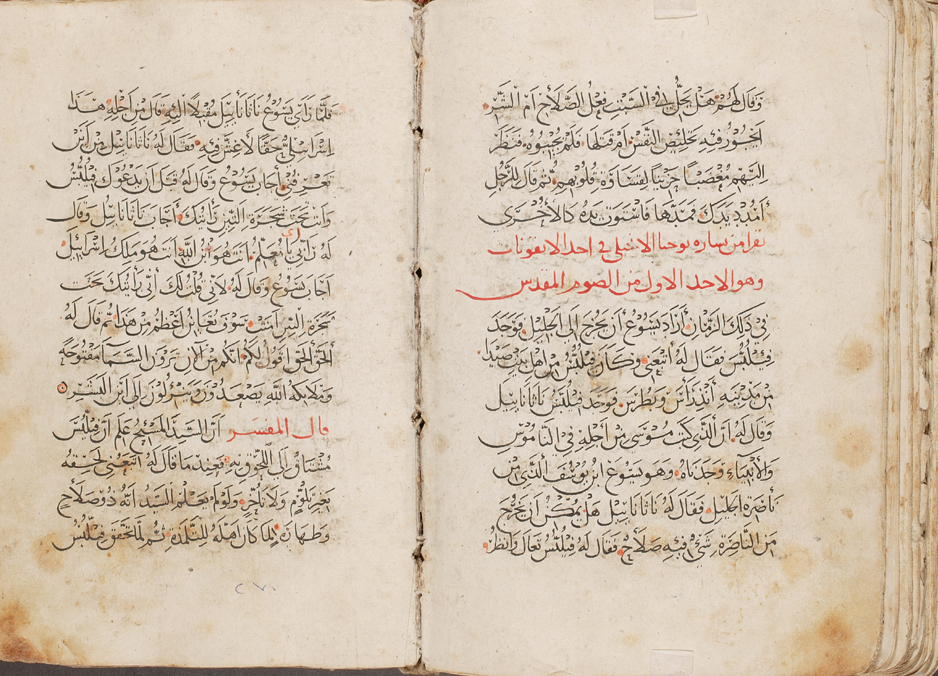 وقال لهم هل يحل في السبت فعل الصلاح ام الشر
ايجوز فيه تخليص النفس ام قتلها فلم يجيبوه فنظر
اليهم مغضبا حزينا لقساوة قلوبهم ثم قال للرجل
امدد يدك فمدها فاستوت يده كالاخرى
يقرا من بشاره يوحنا الانجيلي في احد الايقونات
وهو الاحد الاول من الصوم المقدس
في ذلك الزمان اراد يسوع ان يخرج الى الجليل فوجد
فيلبس فقال له اتبعني وكان فيلبس من اهل بيت صيدا
من مدينه اندراس وبطرس فوجد فيلبس ناثانائيل
وقال له ان الذي كتب موسى من اجله في الناموس
والانبياء وجدناه وهو يسوع ابن يوسف الذي من
ناصرة الجليل فقال له ناثانائيل هل يمكن ان يخرج
من الناصرة شي فيه صلاح فقال له فيلبس تعال وانظر
فلما راى يسوع ناثانائيل مقبلا اليه قال من اجله هذا
اسراييلي حقا لا غش فيه فقال له ناثانائيل من اين
تعرفني اجاب يسوع وقال له قبل ان يدعوك فيلبس
وانت تحت شجرة التين رايتك اجاب ناثانائيل وقال
له رابي يا معلم انت هو ابن الله انت هو ملك اسرائيل
اجاب يسوع وقال له لاني قلت لك اني رايتك تحت
شجرة التين امنت سوف تعاين اعظم من هذا ثم قال له
الحق الحق اقول لكم انكم من الان ترون السما مفتوحة
وملايكة الله يصعدون وينزلون الى ابن البشر
قال المفسر ان السيد المسيح علم ان فيلبس
مشتاق الى اللحوق به فعند ما قال له اتبعني لحقه
بغير تلوم ولا تاخر ولو لم يعلم السيد انه ذو صلاح
وطهارة لما كان اهله للتلمذة ثم لما تحقق فيلبس